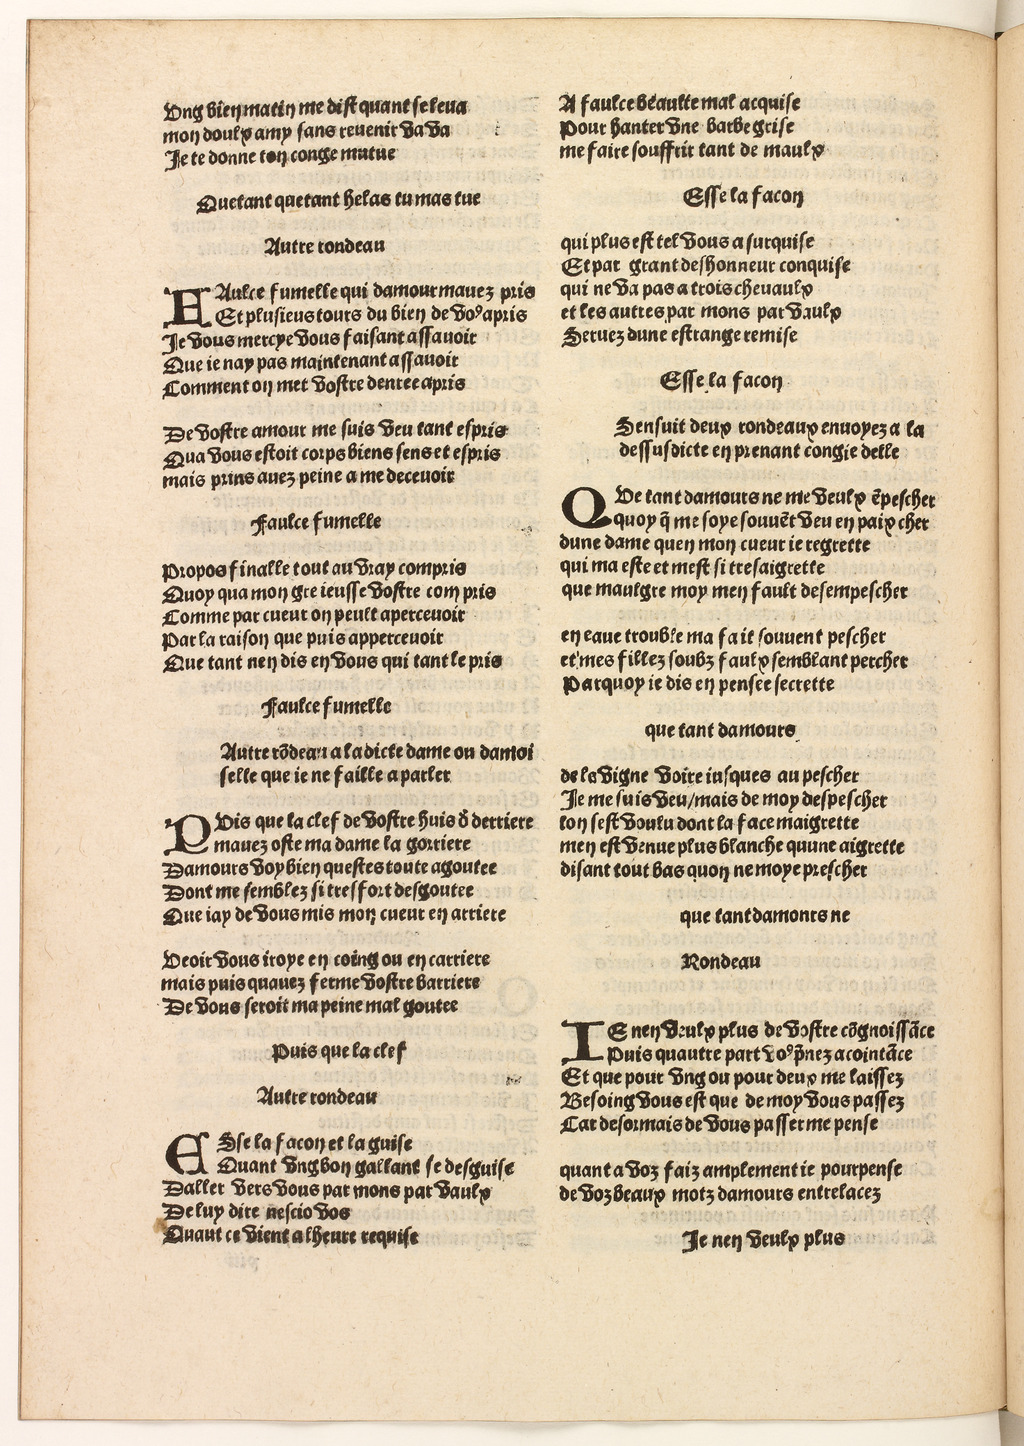 Ung bien matin me dist quant se leua
mon doulx amy sans reuenir va va
Je te donne ton conge mutue
Quetant quetant helas tu mas tue
Autre rondeau
FAulce fumelle qui damour mauez pris
Et plusieus tours du bien de voꝰ apris
Je vous mercye vous faisant assauoir
Que ie nay pas maintenant assauoir
Comment on met vostre dentee apris
De vostre amour me suis veu tant espris
Qua vous estoit corps biens sens et espris
mais prins auez peine a me deceuoir
Faulce fumelle
Propos finalle tout au vray compris
Quoy qua mon gre ieusse vostre com pris
Comme par cueur on peult aperceuoir
Par la raison que puis apperceuoir
Que tant nen dis en vous qui tant le pris
Faulce fumelle
Autre rõdeau a la dicte dame ou damoi
selle que ie ne faille a parler
PVis que la clef de vostre huis d̄ derriere
mauez oste ma dame la gorriere
Damours voy bien questes toute agoutee
Dont me semblez si tresfort desgoutee
Que iay de vous mis mon cueur en arriere
Veoir vous iroye en coing ou en carriere
mais puis quauez ferme vostre barriere
De vous seroit ma peine mal goutee
Puis que la clef
Autre rondeau
ESse la facon et la guise
Quant vng bon gallant se desguise
Daller vers vous par mons par vaulx
De luy dire nescio vos
Quaut ce vient a lheure requise
A faulce beaulte mal acquise
Pour hanter vne barbe grise
me faire souffrir tant de maulx
Esse la facon
qui plus est tel vous a surquise
Et par grant deshonneur conquise
qui ne va pas a trois cheuaulx
et les autres par mons par vaulx
Seruez dune estrange remise
Esse la facon
Sensuit deux rondeaux enuoyez a la
dessusdicte en prenant congie delle
QVe tant damours ne me veulx ẽpescher
quoy q̃ me soye souuẽt veu en paix cher
dune dame quen mon cueur ie regrette
qui ma este et mest si tresaigrette
que maulgre moy men fault desempescher
en eaue trouble ma fait souuent pescher
et mes fillez soubz faulx semblant percher
Parquoy ie dis en pensee secrette
que tant damours
de la vigne voire iusques au pescher
Je me suis veu/mais de moy despescher
lon sest voulu dont la face maigrette
men est venue plus blanche quune aigrette
disant tout bas quon ne moye prescher
que tant damonrs ne
Rondeau
IE nen veulx plus de vostre cõgnoissãce
Puis quautre part voꝰ p̃nez acointãce
Et que pour vng ou pour deux me laissez
Besoing vous est que de moy vous passez
Car desormais de vous passer me pense
quant a voz faiz amplement ie pourpense
de voz beaux motz damours entrelacez
Je nen veulx plus